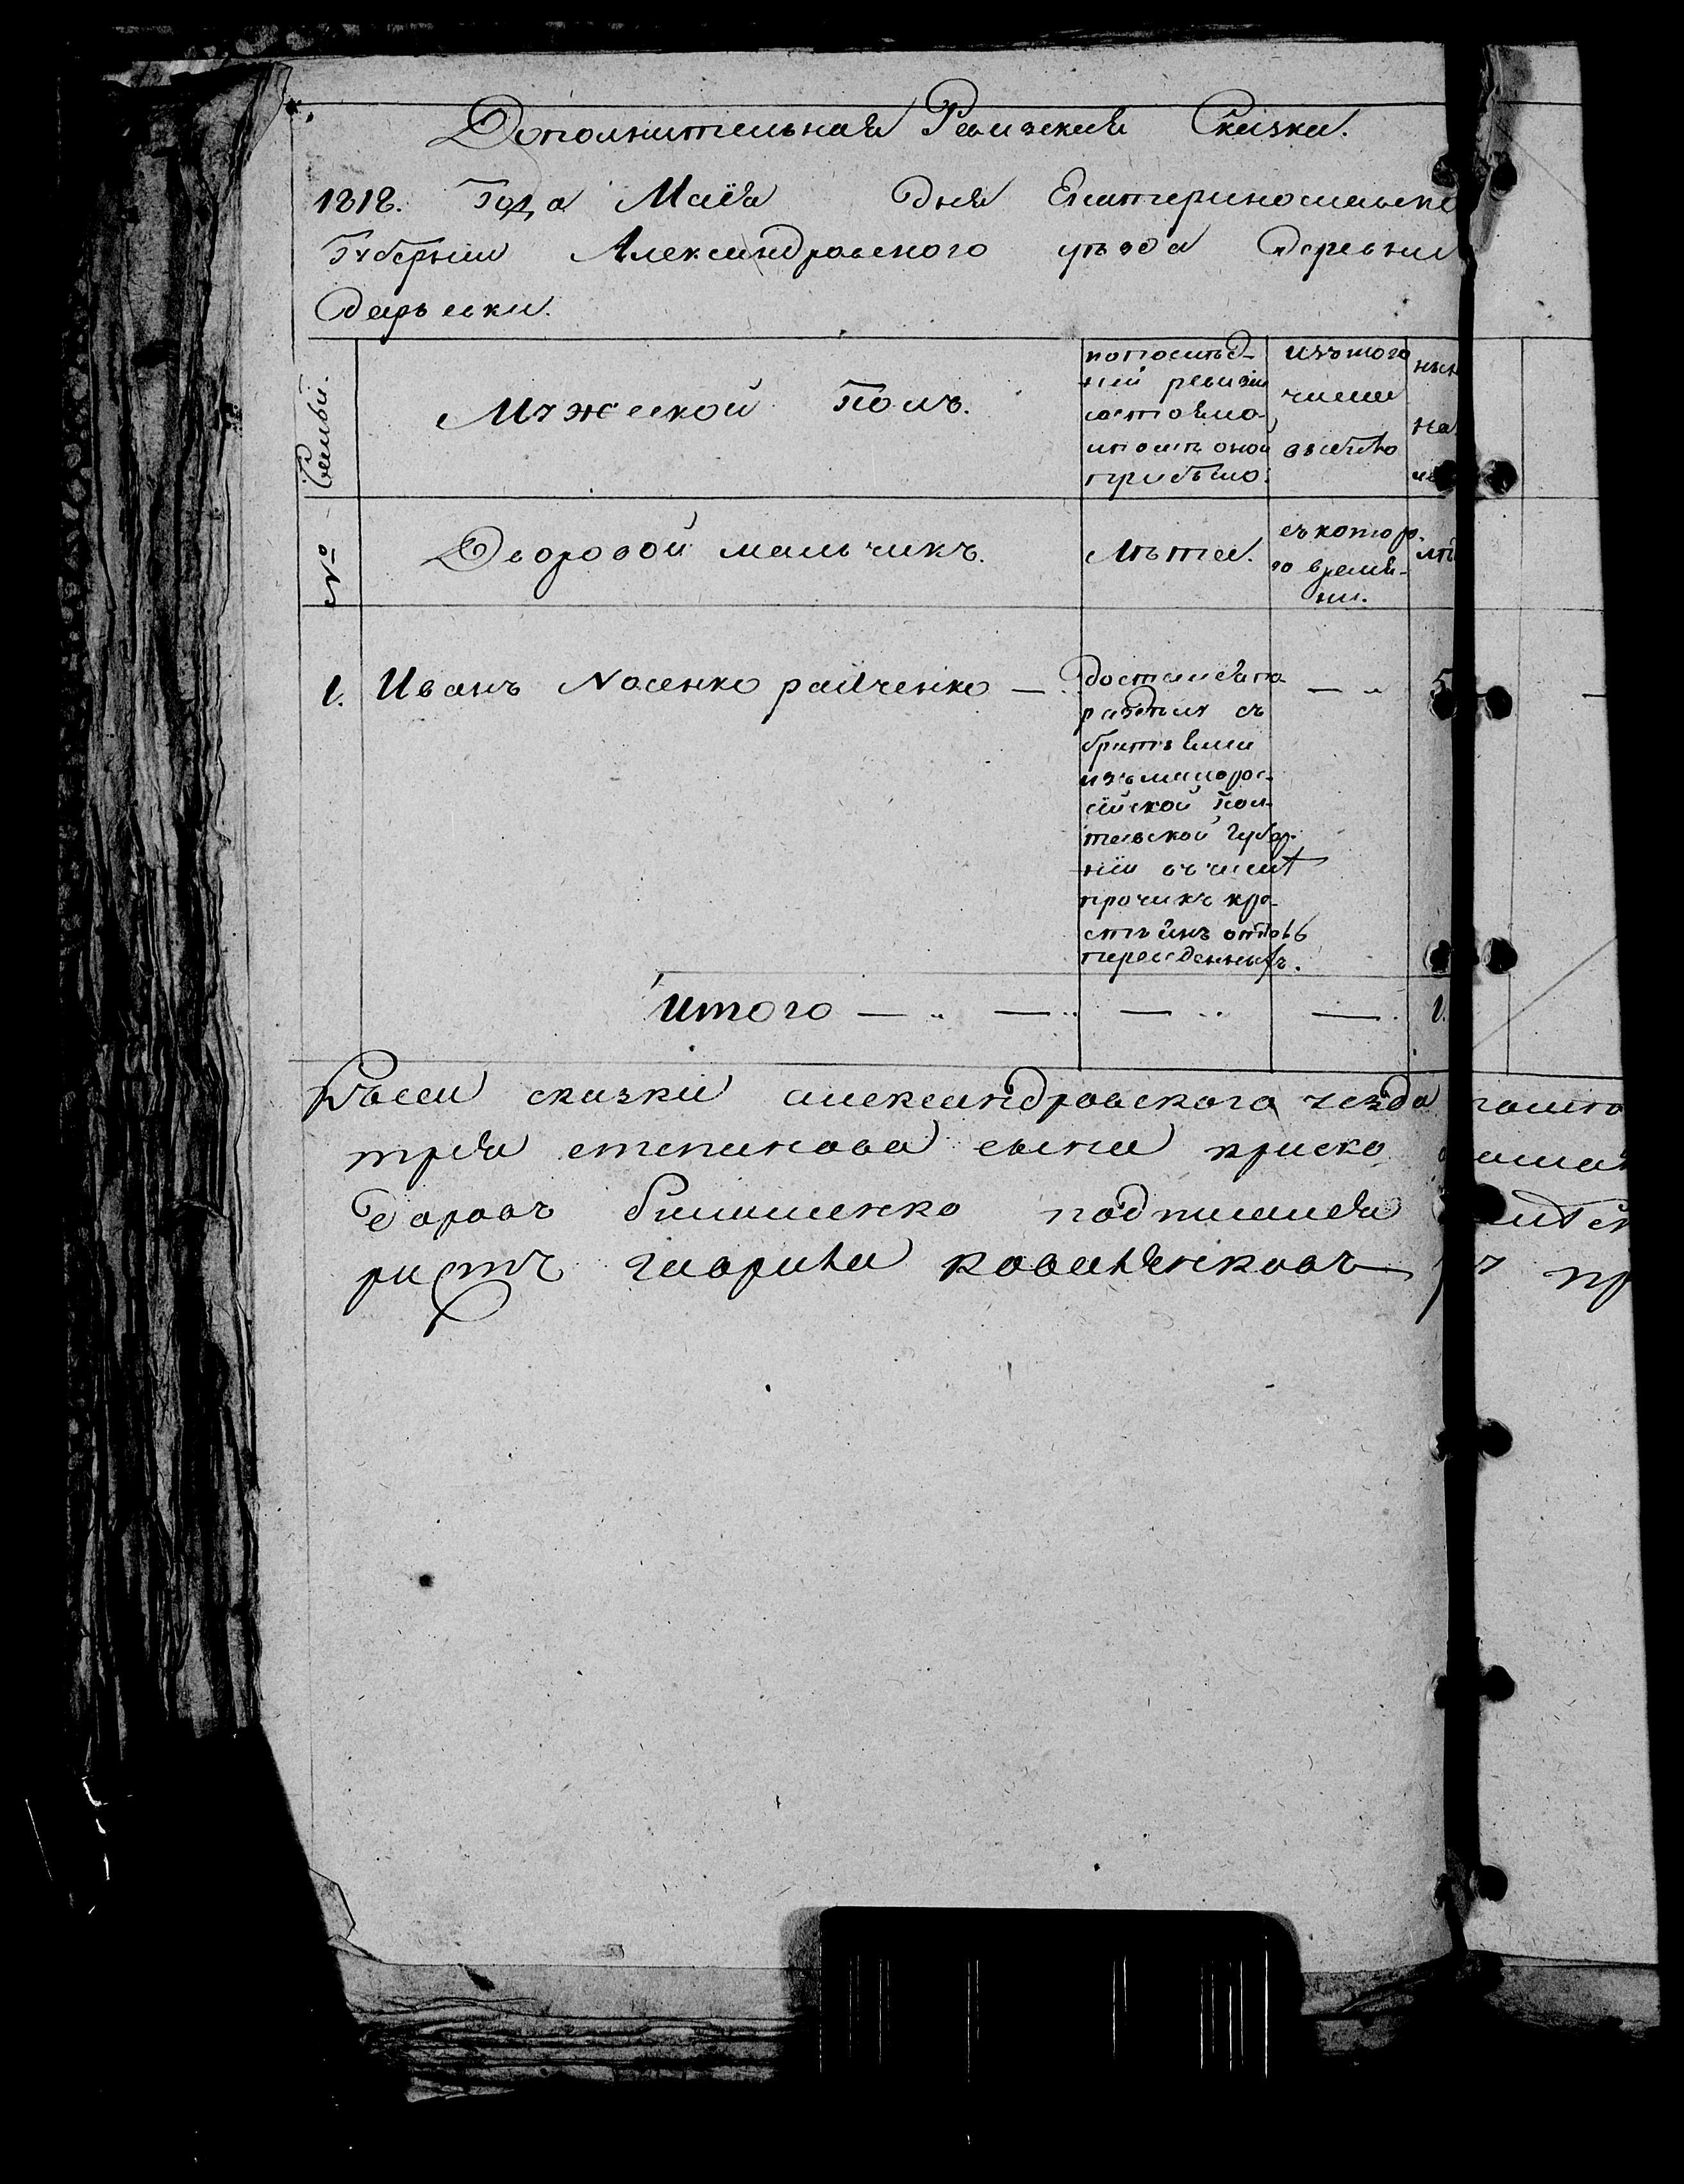 Дополнительная Ревизская Сказка.
1818. Года Маія дня Екатеринославско
Губерніи Александровского уѣзда деревни
дарьевки.
№ Семьи.
Мужеской Полъ.
попослѣд-
ней ревизіи
состояло
ипослѣ оной
прибыло.
изътого
числа
выбыло
нын
на
Дворовой мальчикъ.
Лѣта.
съ котор.
го време-
ни.
лѣ
1. Иванъ Носенко райченко —
достался по
раздѣлу съ
братьями
изъ малорос-
сійской Пол-
тавской губер-
ніи въ числѣ
прочихъ кре-
стьянъ
переведенныхъ.
— „
5
Итого — „ — „ — „ — . 1.
Късей сказки александровского уезда
трія степанова сына приско
Егоровъ Билименко подписался
ристъ гаврила коваленковъ пр